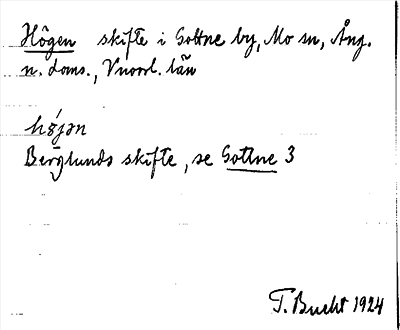 Högen skifte i Gottne by, Mo sn, Ång.
n. doms., Vnorrl. län
Berglunds skifte, se Gottne 3
T. Bucht 1924